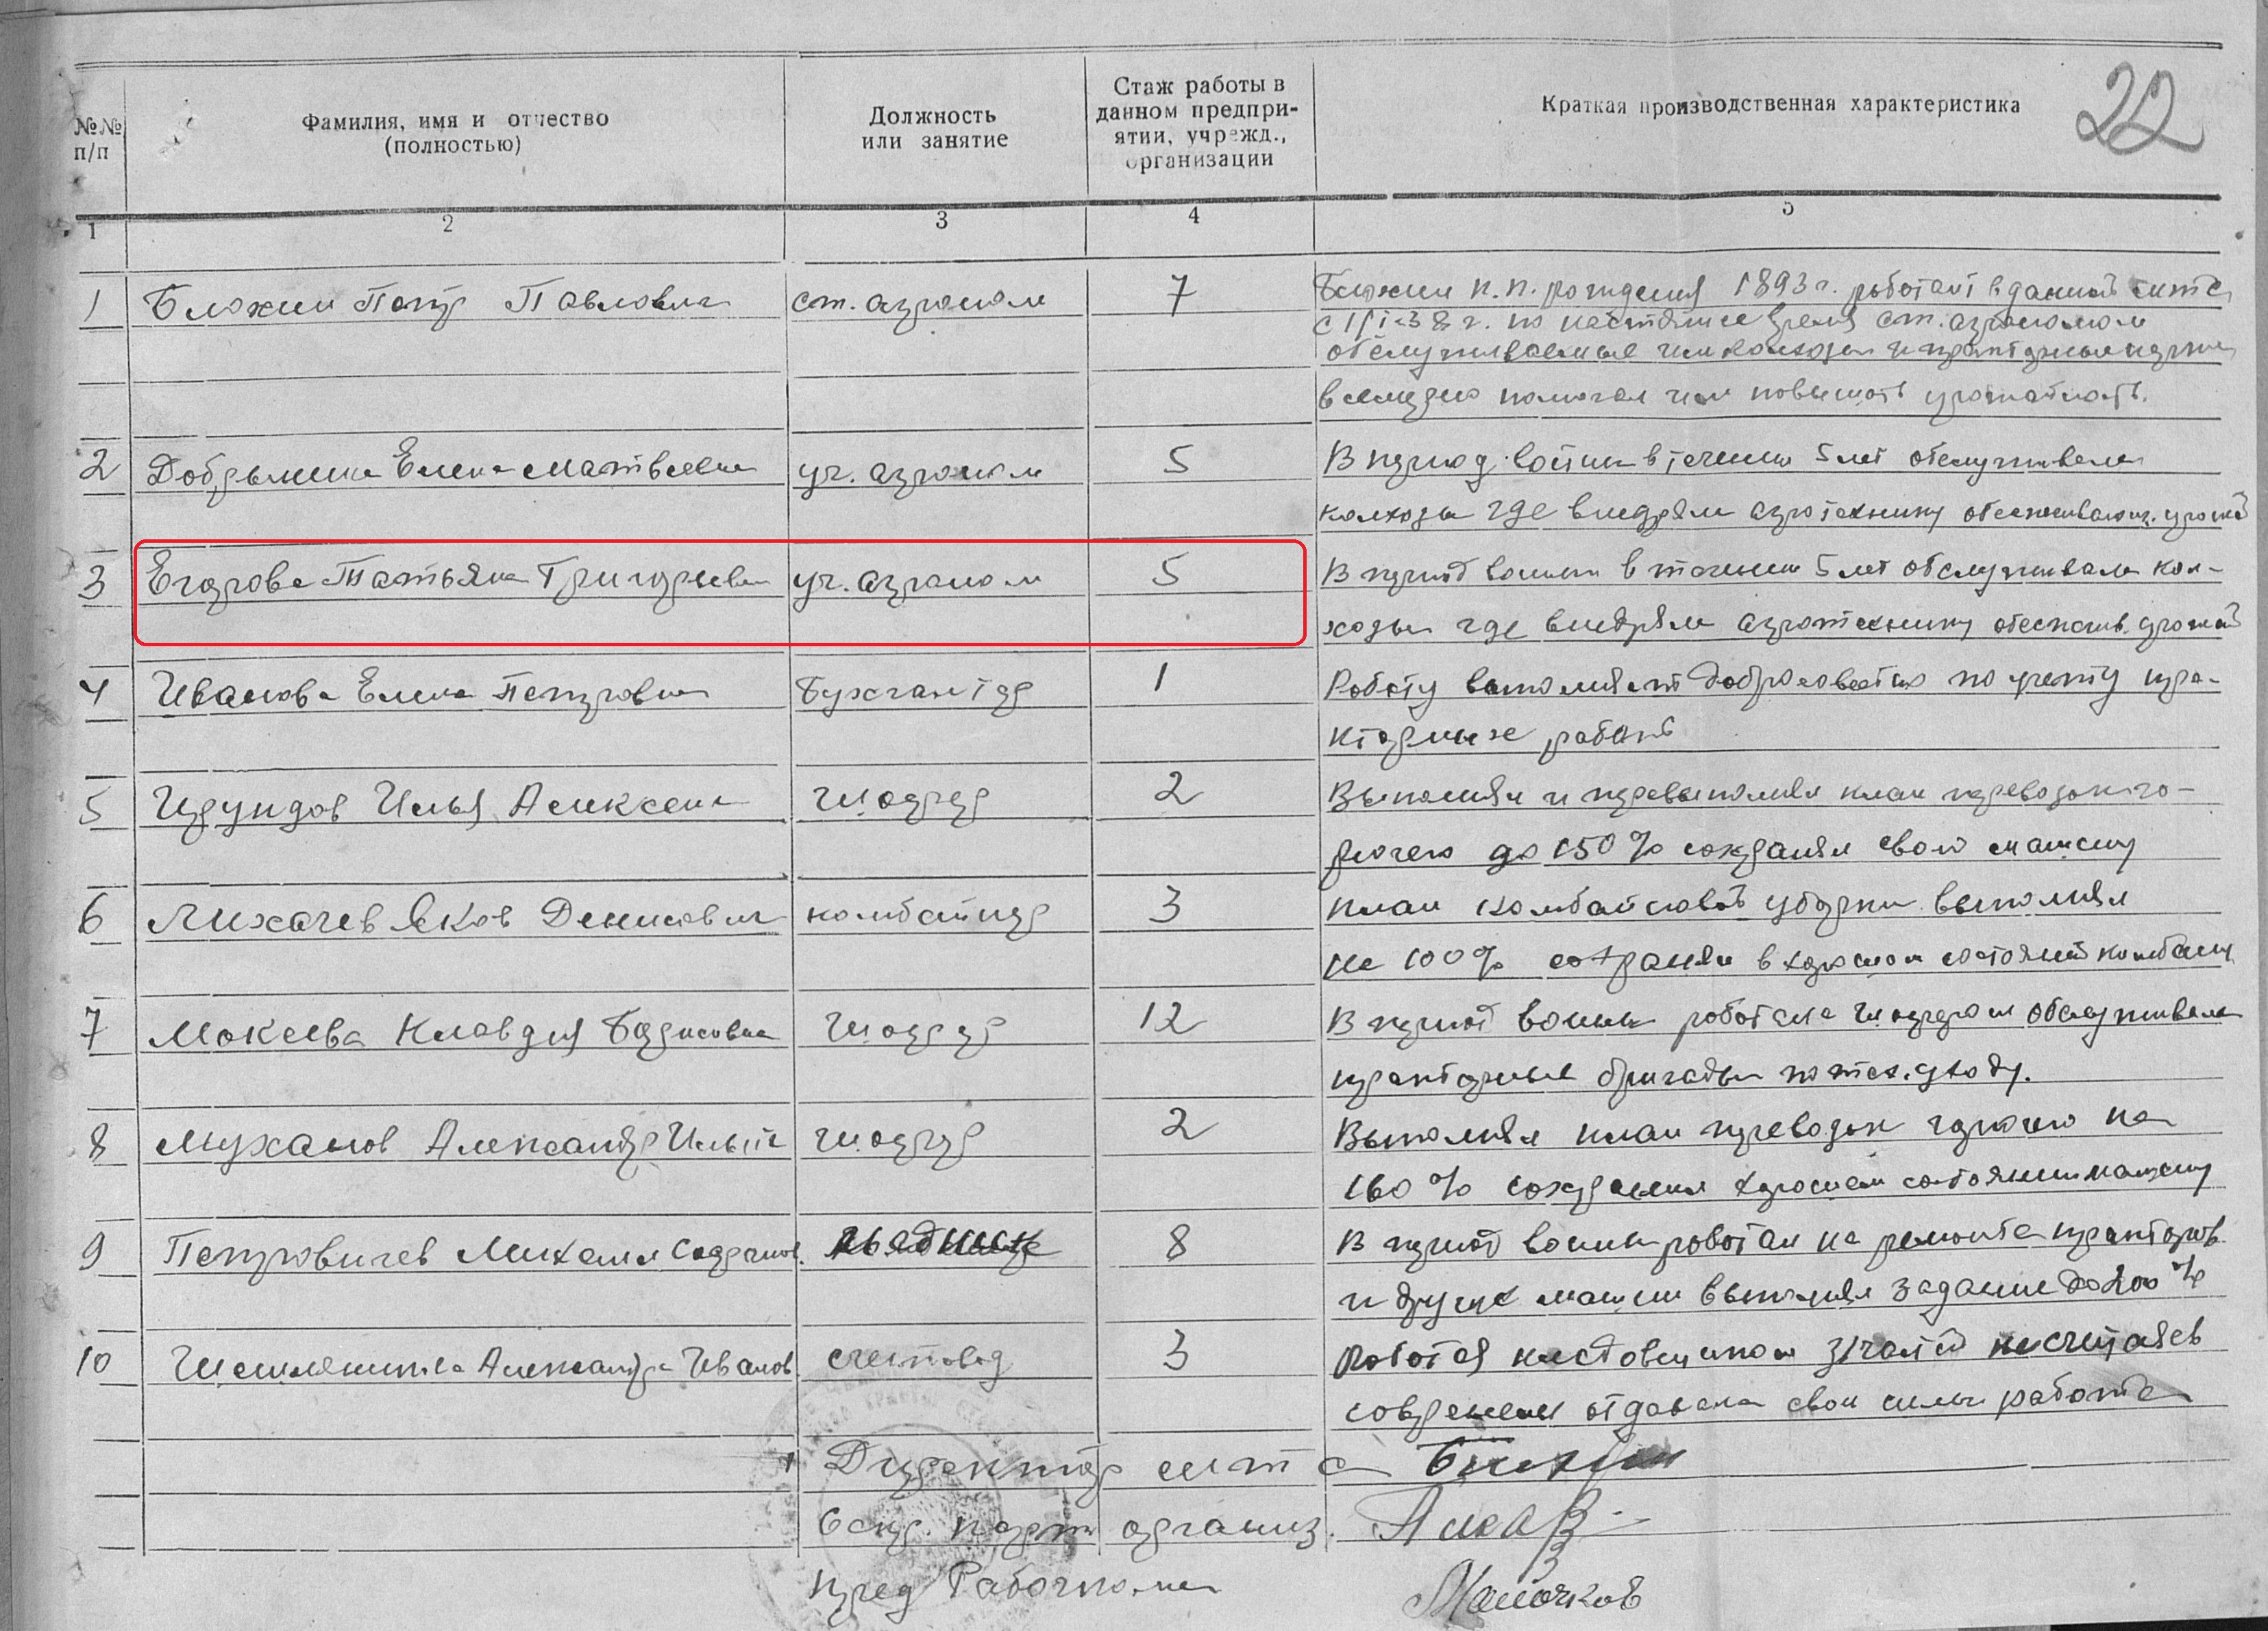 22
№№ п/п
Фамилия, имя и отчество (полностью)
Должность или занятие
Стаж работы в данном предприятии, учрежд., организации
Краткая производственная характеристика
1 2 3 4 5
1 Блохин Петр Павлович ст. агроном 7 Блохин П.П. рождения 1893 г. работает в данной мтс
с 1938 г. по настоящее время ст. агрономом
обслуживаемые им колхозы и тракторные
всемерно помогал им повышать урожайность.
2 Добрынина Елена Матвеевна уч. агроном 5 В период войны в течении 5 лет обслуживала
колхозы где внедряла агротехнику обеспечивающ. урожай
3 Егорова Татьяна Григорьевна уч. агроном 5 В период войны в течении 5 лет обслуживала кол-
хозы где внедряла агротехнику обеспечив. урожай
4 Иванова Елена Петровна Бухгалтер 1 Работу выполняет добросовестно по учету тра-
кторных работ
5 Илья Алексеев Шофер 2 Выполнял и перевыполнял план перевозок го-
рючего до 150% сохранял свою машину
6 Лихачев Яков Денисович комбайнер 3 план комбайновой уборки выполнял
на 100% сохранял в хорошом состояний комбайн
7 Мокеева Клавдия Борисовна Шофер 12 В период войны работала шофером обслуживала
тракторные бригады по тех. уходу.
8 Муханов Александр Ильич шофер 2 Выполнял план перевозок горючего на
160% сохранял хорошем состоянии машину
9 Петровичев Михаил 8 В период войны работал на ремонте тракторов
и других машин выполнял задание до 200%
10 Александра Иванов счетовод 3 Работая не считаясь
со временем отдавала свои силы работе
Директор мтс
Секр. парт организ.
пред Рабочкома